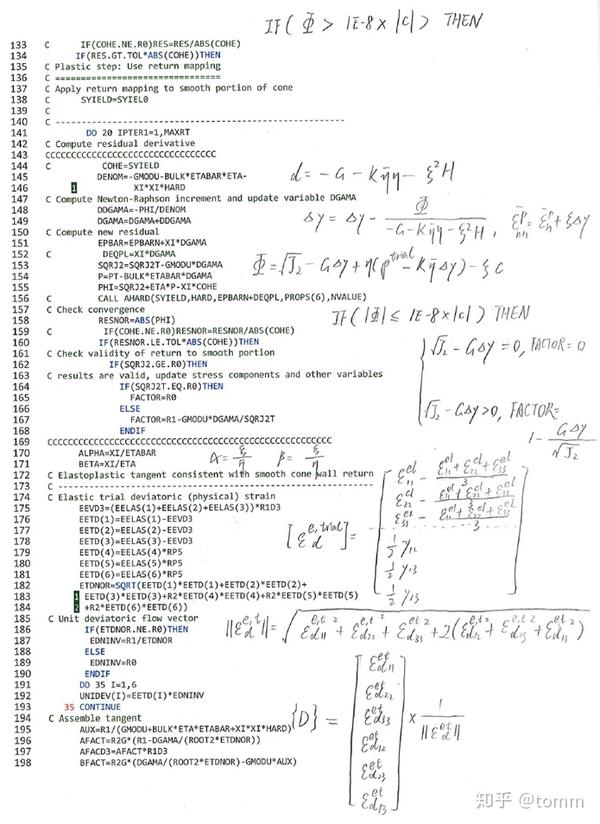 IF( Φ > 1E-8 × |C| ) THEN
133 C IF(COHE.NE.R0)RES=RES/ABS(COHE)
134 IF(RES.GT.TOL*ABS(COHE))THEN
135 C Plastic step: Use return mapping
136 C ==============================
137 C Apply return mapping to smooth portion of cone
138 C SYIELD=SYIEL0
139 C
140 C ----------------------------------------------------
141 DO 20 IPTER1=1,MAXRT
142 C Compute residual derivative
143 CCCCCCCCCCCCCCCCCCCCCCCCCCCCCCC
144 C COHE=SYIELD
145 DENOM=-GMODU-BULK*ETABAR*ETA-
146 1 XI*XI*HARD
d = -G - Kη̄η - ξ²H
147 C Compute Newton-Raphson increment and update variable DGAMA
148 DDGAMA=-PHI/DENOM
149 DGAMA=DGAMA+DDGAMA
Δγ = Δγ - Φ / (-G-Kη̄η-ξ²H) , ε̄ᵖₙ₊₁ = ε̄ᵖₙ + ξΔγ
150 C Compute new residual
151 EPBAR=EPBARN+XI*DGAMA
152 C DEQPL=XI*DGAMA
153 SQRJ2=SQRJ2T-GMODU*DGAMA
154 P=PT-BULK*ETABAR*DGAMA
155 PHI=SQRJ2+ETA*P-XI*COHE
Φ = √J₂ - GΔγ + η(p^trial - Kη̄Δγ) - ξC
156 C CALL AHARD(SYIELD,HARD,EPBARN+DEQPL,PROPS(6),NVALUE)
157 C Check convergence
158 RESNOR=ABS(PHI)
IF( |Φ| ≤ 1E-8×|C| ) THEN
159 C IF(COHE.NE.R0)RESNOR=RESNOR/ABS(COHE)
160 IF(RESNOR.LE.TOL*ABS(COHE))THEN
161 C Check validity of return to smooth portion
162 IF(SQRJ2.GE.R0)THEN
√J₂ - GΔγ = 0, FACTOR = 0
163 C results are valid, update stress components and other variables
164 IF(SQRJ2T.EQ.R0)THEN
165 FACTOR=R0
166 ELSE
√J₂ - GΔγ > 0, FACTOR = 1 - GΔγ/√J₂
167 FACTOR=R1-GMODU*DGAMA/SQRJ2T
168 ENDIF
169 CCCCCCCCCCCCCCCCCCCCCCCCCCCCCCCCCCCCCCCCCCCCCCCCCCC
170 ALPHA=XI/ETABAR
171 BETA=XI/ETA
α = ξ/η̄ β = ξ/η
172 C Elastoplastic tangent consistent with smooth cone wall return
173 C ----------------------------------------------------
174 C Elastic trial deviatoric (physical) strain
175 EEVD3=(EELAS(1)+EELAS(2)+EELAS(3))*R1D3
176 EETD(1)=EELAS(1)-EEVD3
177 EETD(2)=EELAS(2)-EEVD3
178 EETD(3)=EELAS(3)-EEVD3
179 EETD(4)=EELAS(4)*RP5
180 EETD(5)=EELAS(5)*RP5
181 EETD(6)=EELAS(6)*RP5
182 ETDNOR=SQRT(EETD(1)*EETD(1)+EETD(2)*EETD(2)+
183 1 EETD(3)*EETD(3)+R2*EETD(4)*EETD(4)+R2*EETD(5)*EETD(5)
184 2 +R2*EETD(6)*EETD(6))
185 C Unit deviatoric flow vector
186 IF(ETDNOR.NE.R0)THEN
187 EDNINV=R1/ETDNOR
188 ELSE
189 EDNINV=R0
190 ENDIF
191 DO 35 I=1,6
192 UNIDEV(I)=EETD(I)*EDNINV
193 35 CONTINUE
194 C Assemble tangent
195 AUX=R1/(GMODU+BULK*ETA*ETABAR+XI*XI*HARD)
196 AFACT=R2G*(R1-DGAMA/(ROOT2*ETDNOR))
197 AFACD3=AFACT*R1D3
198 BFACT=R2G*(DGAMA/(ROOT2*ETDNOR)-GMODU*AUX)
知乎 @tomm